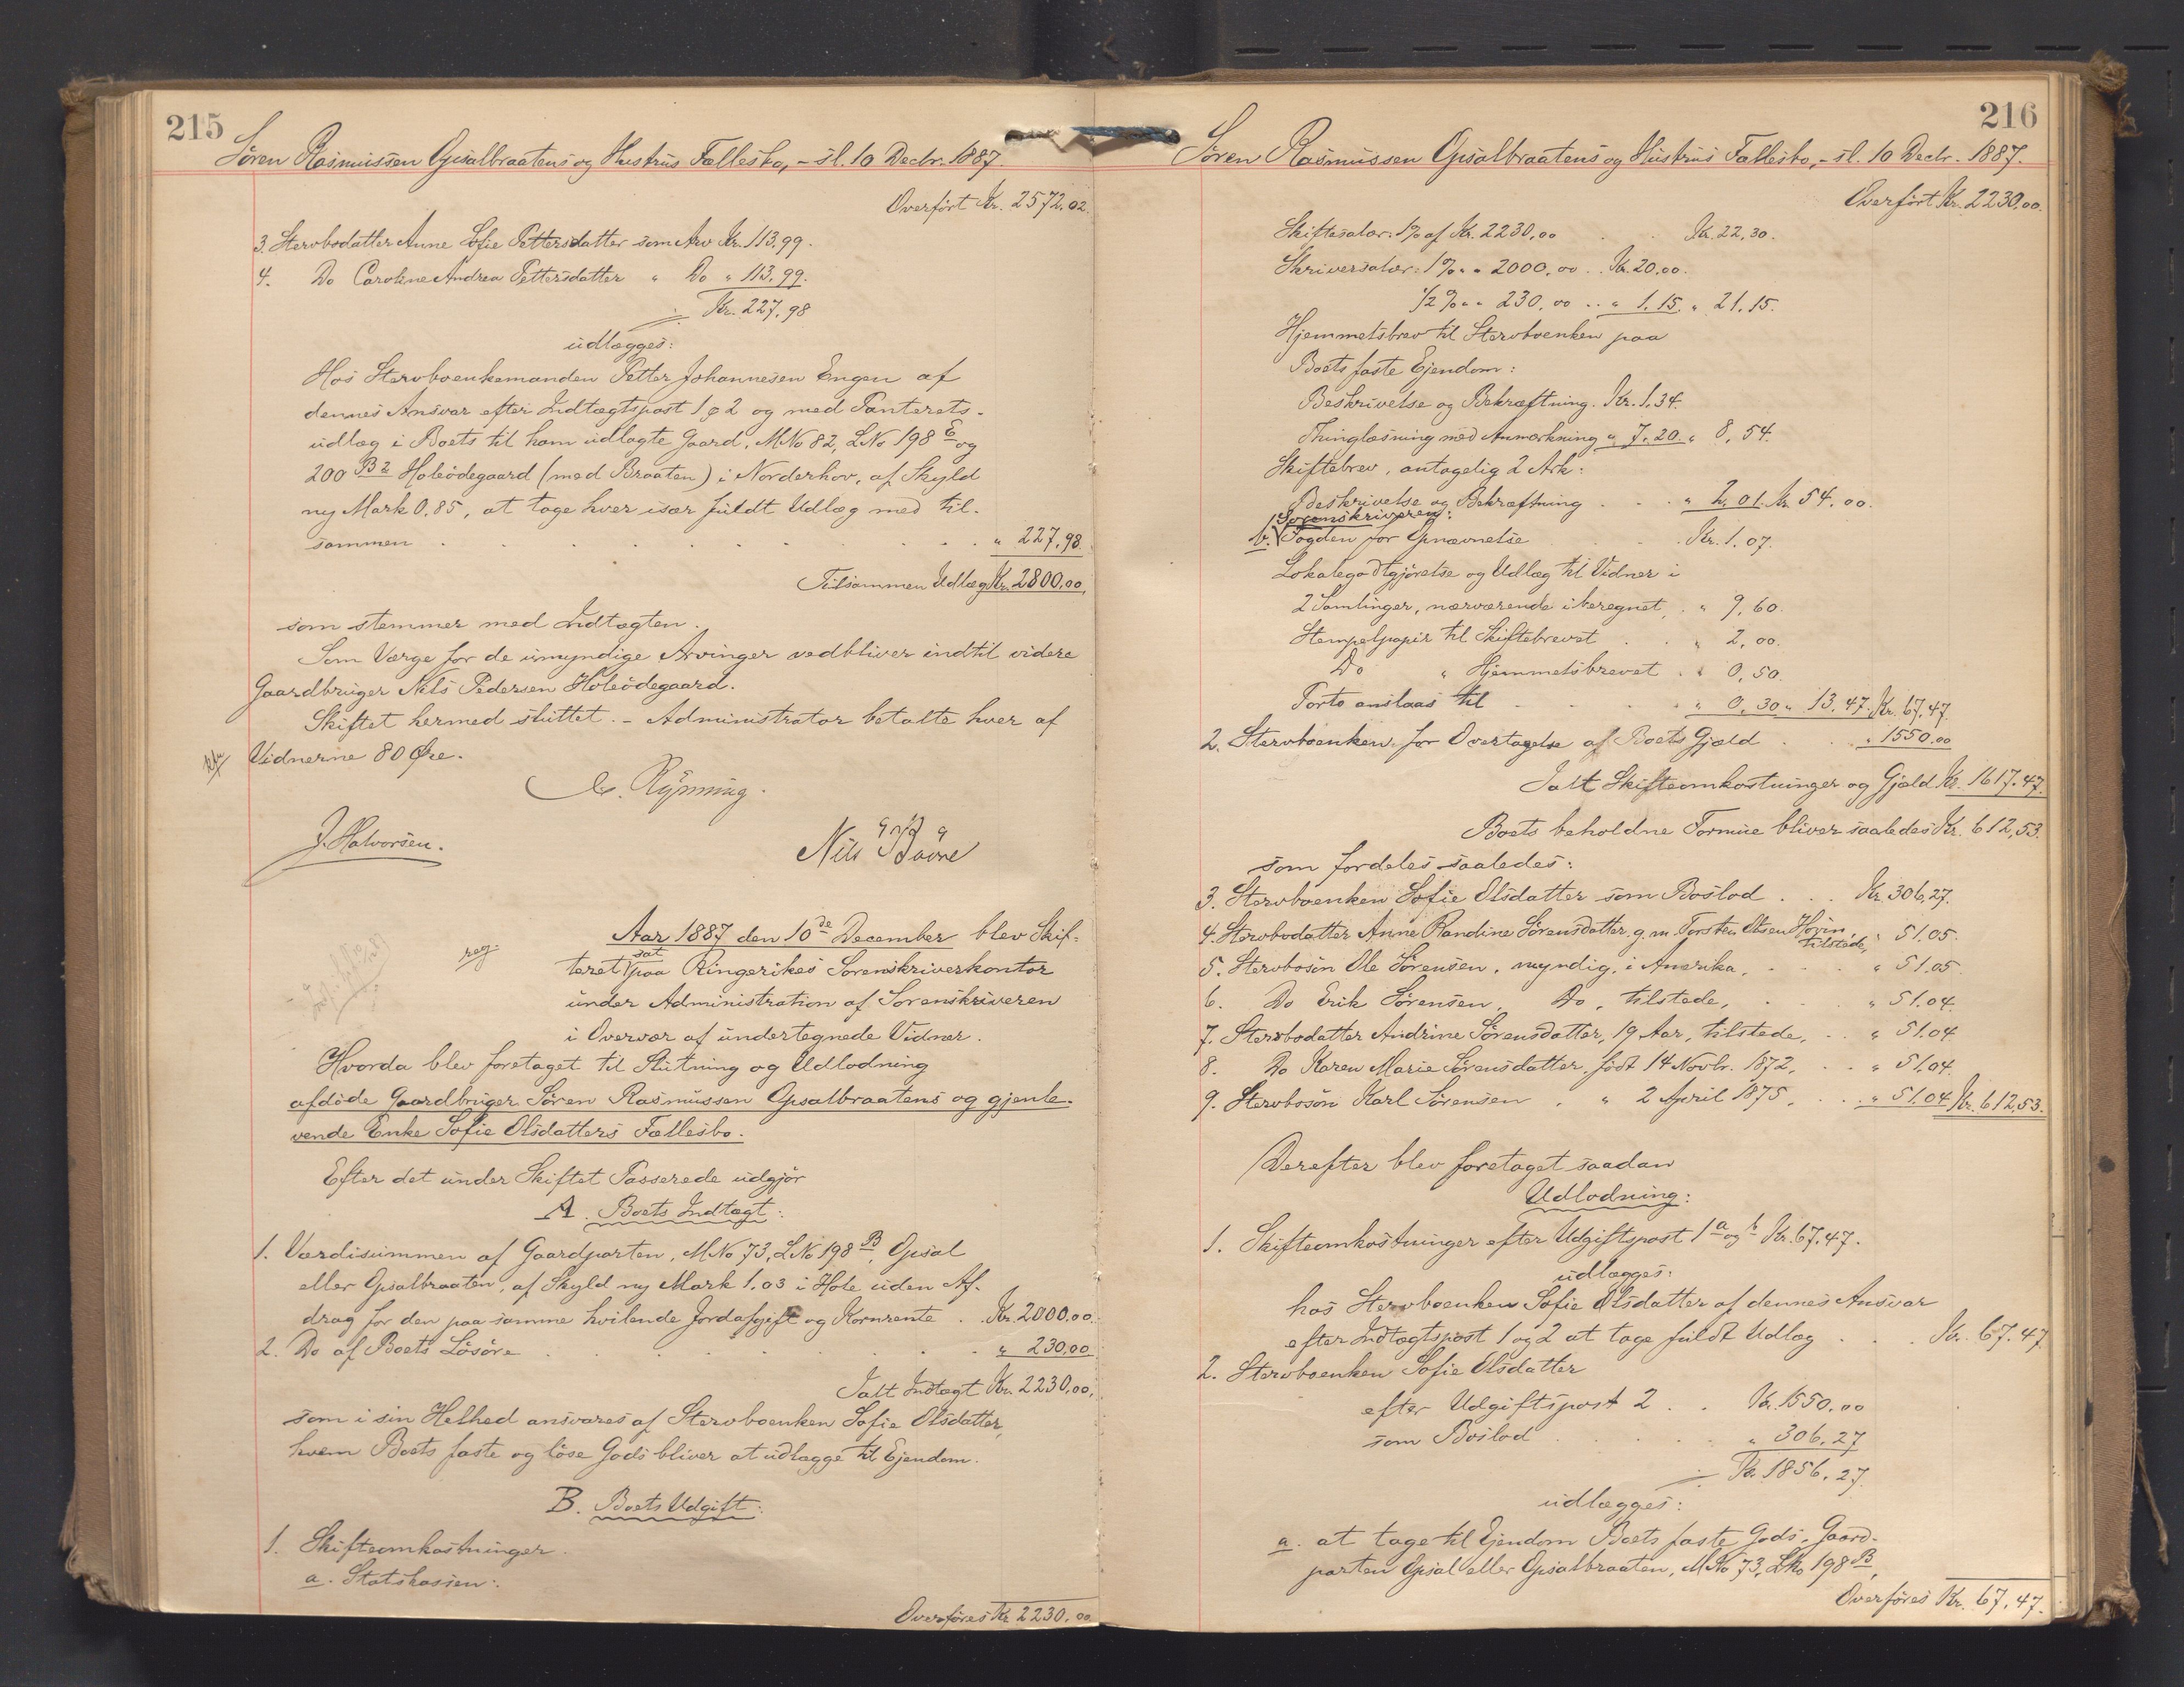 215
Sören Rasmussen Opsalbraatens og Hustrus Fællesbo, - sl. 10 Decbr. 1887.
Overført Kr. 2572.02.
3. Stervbodatter Anne Sofie Pettersdatter som Arv Kr. 113.99.
4. Do Caroline Andrea Pettersdatter " Do " 113.99.
÷ Kr. 227.98
udlægges:
Hos Stervboenkemanden Petter Johannesen Engen af
dennes Ansvar efter Indtægtspost 1 & 2 og med Panterets-
udlæg i Boets til ham udlagte Gaard, M No 82, L No 198 E og
200 B2 Holeödegaard (med Braaten) i Norderhov, af Skyld
ny Mark 0.85, at tage hver især fuldt Udlæg med til-
sammen . . . . . . " 227.98.
Tilsammen Udlæg Kr. 2800.00.
som stemmer med Indtægten.
Som Værge for de umyndige Arvinger vedbliver indtil videre
Gaardbruger Nels Pedersen Holeödegaard.
Skiftet hermed sluttet. - Administrator betalte hver af
Vidnerne 80 Øre.
Rynning.
J. Halvorsen.
Nils
reg.
Aar 1887 den 10de December blev Skif-
teret sat paa Ringerikes Sorenskriverkontor
under Administration af Sorenskriveren
i Overvær af undertegnede Vidner.
Hvorda blev foretaget til Slutning og Udlodning
afdøde Gaardbruger Sören Rasmussen Opsalbraatens og gjenle-
vende Enke Sofie Olsdatters Fællesbo.
Efter det under Skiftet Passerede udgjör
A. Boets Indtægt:
1. Værdisummen af Gaardparten, M No 73, L No 198 B, Opsal
eller Opsalbraaten, af Skyld ny Mark 1.03 i Hole uden Af-
drag for den paa samme hvilende Jordafgift og Kornrente . Kr. 2000.00.
2. Do af Boets Lösöre . . . . . . " 230.00
Ialt Indtægt Kr. 2230.00,
som i sin Helhed ansvares af Stervboenken Sofie Olsdatter,
hvem Boets faste og löse Gods bliver at udlægge til Ejendom.
B. Boets Udgift:
1. Skifteomkostninger.
a. Statskassen:
Overføres Kr. 2230.00
216
Sören Rasmussen Opsalbraatens og Hustrus Fællesbo, - sl. 10 Decbr. 1887.
Overført Kr. 2230.00.
Skiftesalær: 1% af Kr. 2230.00 . . Kr. 22.30.
Skriversalær: 1% " " 2000.00 . . Kr. 20.00.
1/2 % " " 230.00 . . " 1.15. " 21.15.
Hjemmetsbrev til Stervboenken paa
Boets faste Ejendom:
Beskrivelse og Bekræftning. Kr. 1.34.
Thinglæsning med Anmærkning " 7.20. " 8.54.
Skiftebrev, antagelig 2 Ark:
Beskrivelse og Bekræftning . . . " 2.01. Kr. 54.00.
Sorenskriveren:
b. Fogden for Opnævnelse . . . Kr. 1.07.
Lokalegodtgjörelse og Udlæg til Vidner i
2 Samlinger, nærværende iberegnet, . " 9.60.
Stempelpapir til Skiftebrevet . . " 2.00.
Do " Hjemmetsbrevet . " 0.50.
Porto anslaas til . . . . " 0.30 " 13.47. Kr. 67.47.
2. Stervboenken for Overtagelse af Boets Gjæld . . . " 1550.00
Ialt Skifteomkostninger og Gjæld Kr. 1617.47.
Boets beholdne Formue bliver saaledes Kr. 612.53.
som fordeles saaledes:
3. Stervboenken Sofie Olsdatter som Boslod . . . Kr. 306.27.
4. Stervbodatter Anne Randine Sörensdatter g. m. Torsten Olsen Hovin, tilstede, " 51.05.
5. Stervbosön Ole Sörensen, myndig, i Amerika, . . . " 51.05
6. Do Erik Sörensen, Do, tilstede, . . . " 51.04.
7. Stervbodatter Andrine Sörensdatter, 19 Aar, tilstede, . . " 51.04
8. Do Karen Marie Sörensdatter, født 14 Novbr. 1872, . . " 51.04.
9. Stervbosön Karl Sörensen, " 2 April 1875, . . . " 51.04 Kr. 612.53.
Derefter blev foretaget saadan
Udlodning:
1. Skifteomkostninger efter Udgiftspost 1 a og b Kr. 67.47.
udlægges:
hos Stervboenken Sofie Olsdatter af dennes Ansvar
efter Indtægtspost 1 og 2 at tage fuldt Udlæg . . . Kr. 67.47
2. Stervboenken Sofie Olsdatter
efter Udgiftspost 2 . . Kr. 1550.00
som Boslod . . . . " 306.27
÷ Kr. 1856.27.
udlægges:
a. at tage til Ejendom Boets faste Gods, Gaard-
parten Opsal eller Opsalbraaten, M No 73, L No 198 B,
Overføres Kr. 67.47.